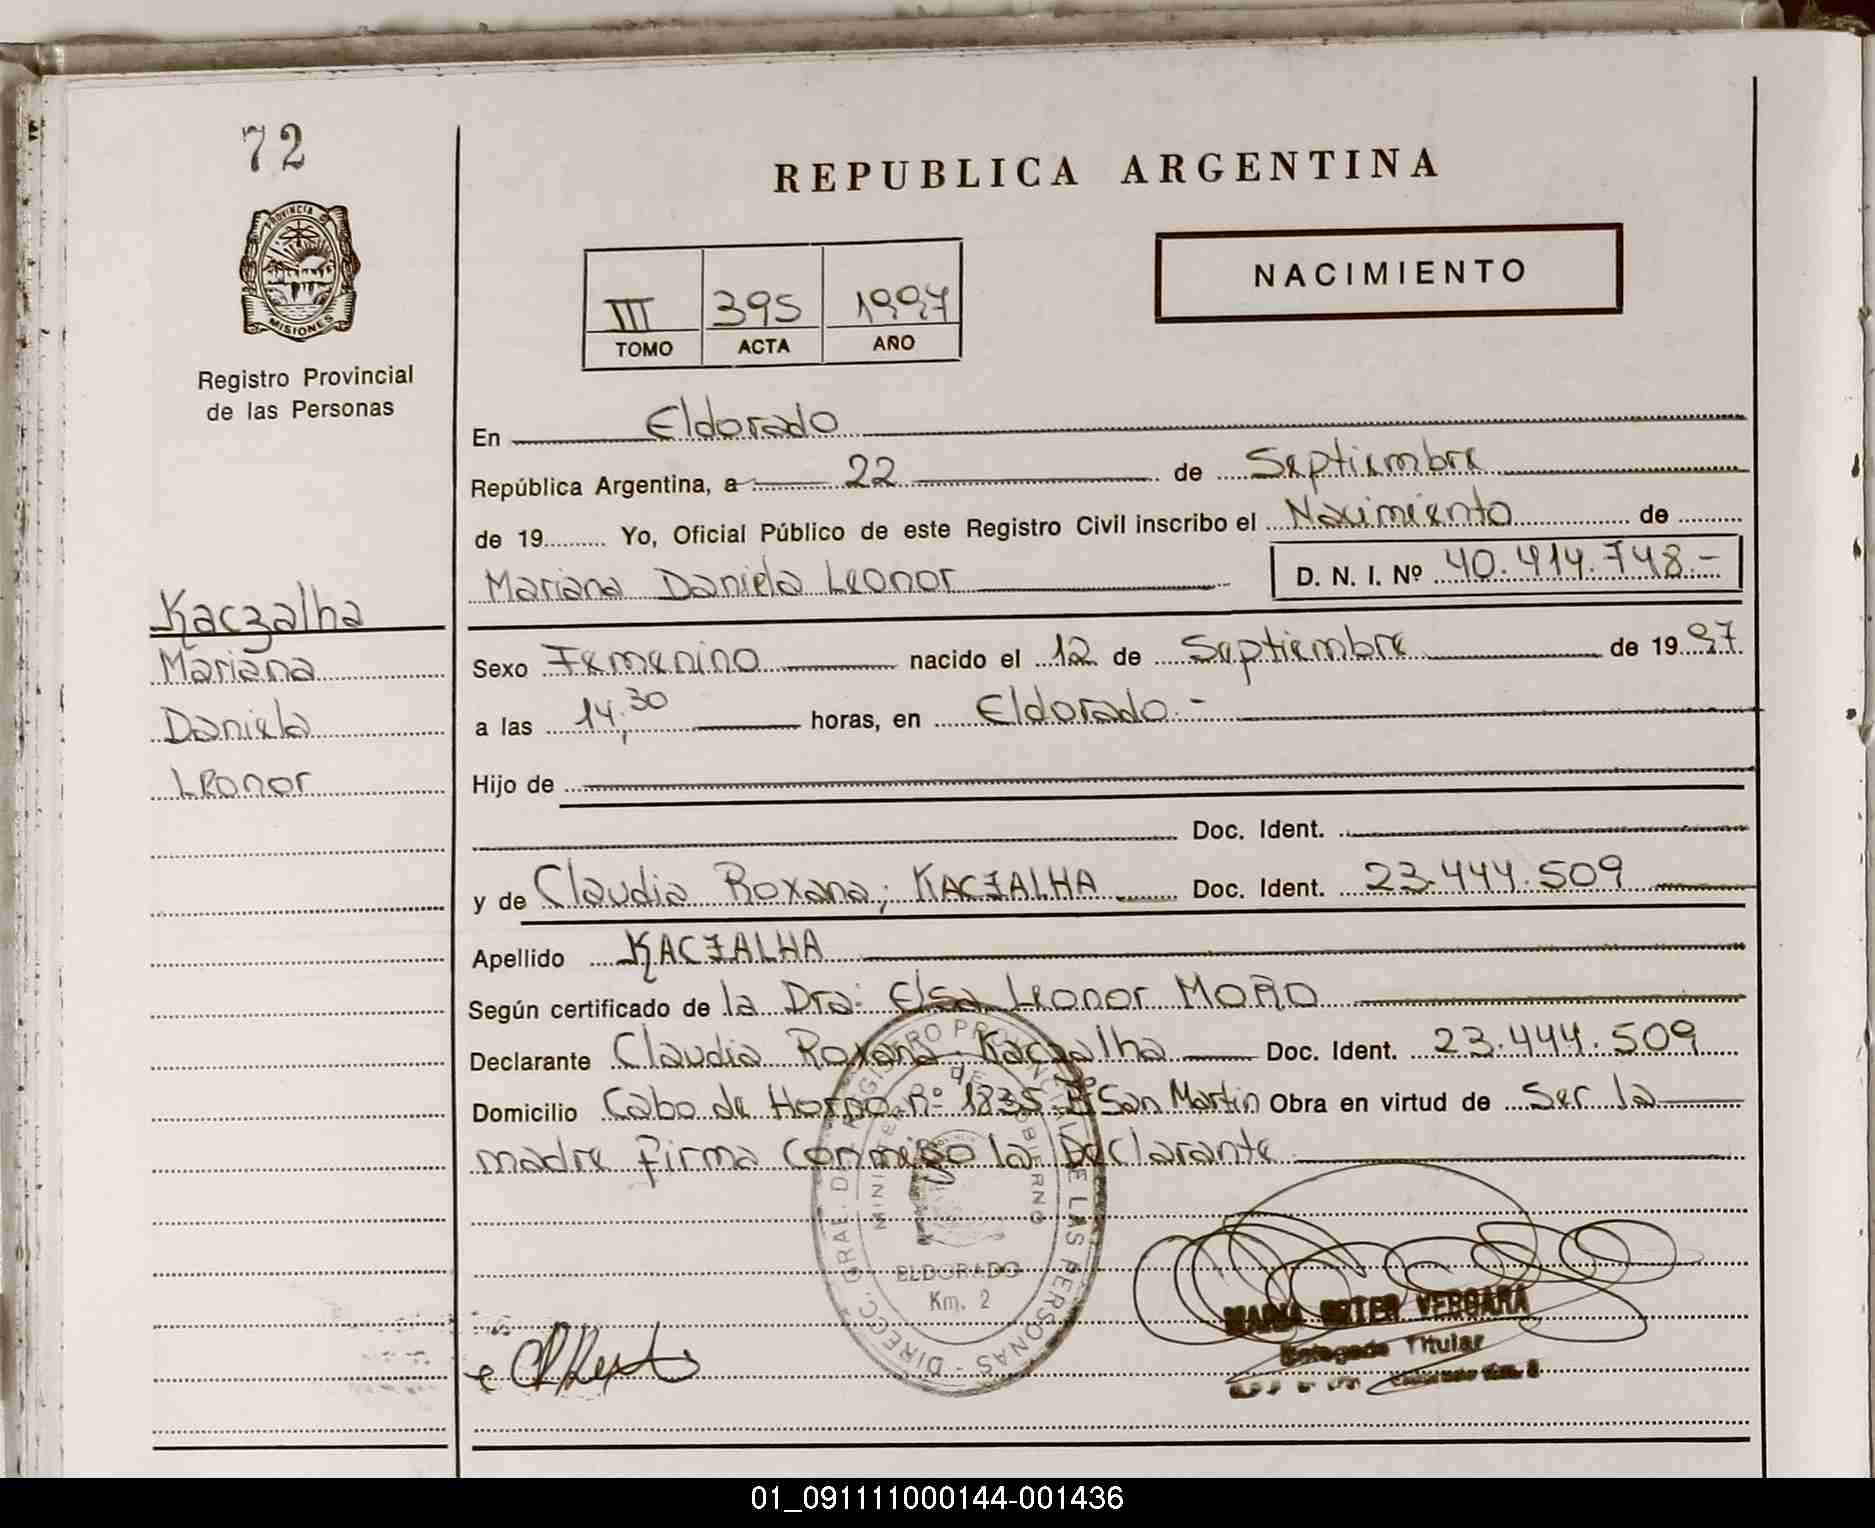 72
PROVINCIA D
MISIONES
Registro Provincial
de las Personas
REPUBLICA ARGENTINA
III 395 1997
TOMO ACTA AÑO
NACIMIENTO
En Eldorado
República Argentina, a 22 de Septiembre
de 19 Yo, Oficial Público de este Registro Civil inscribo el Nacimiento de
Mariana Daniela Leonor D. N. I. Nº 40.414.748.-
Kaczalha
Mariana
Daniela
Leonor
Sexo Femenino nacido el 12 de Septiembre de 1997
a las 14,30 horas, en Eldorado.-
Hijo de
Doc. Ident.
y de Claudia Roxana; KACZALHA Doc. Ident. 23.444.509
Apellido KACZALHA
Según certificado de la Dra: Elsa Leonor MOÑO
Declarante Claudia Roxana Kaczalha Doc. Ident. 23.444.509
Domicilio Cabo de Horno. nº 1835 Bº San Martin Obra en virtud de Ser la
madre firma conmigo la Declarante
DIRECC. GRAL. DEL REGISTRO PROVINCIAL DE LAS PERSONAS -
MINISTERIO DE GOBIERNO
ELDORADO
Km. 2
MARIA ESTER VERGARA
Delegada Titular
01_091111000144-001436